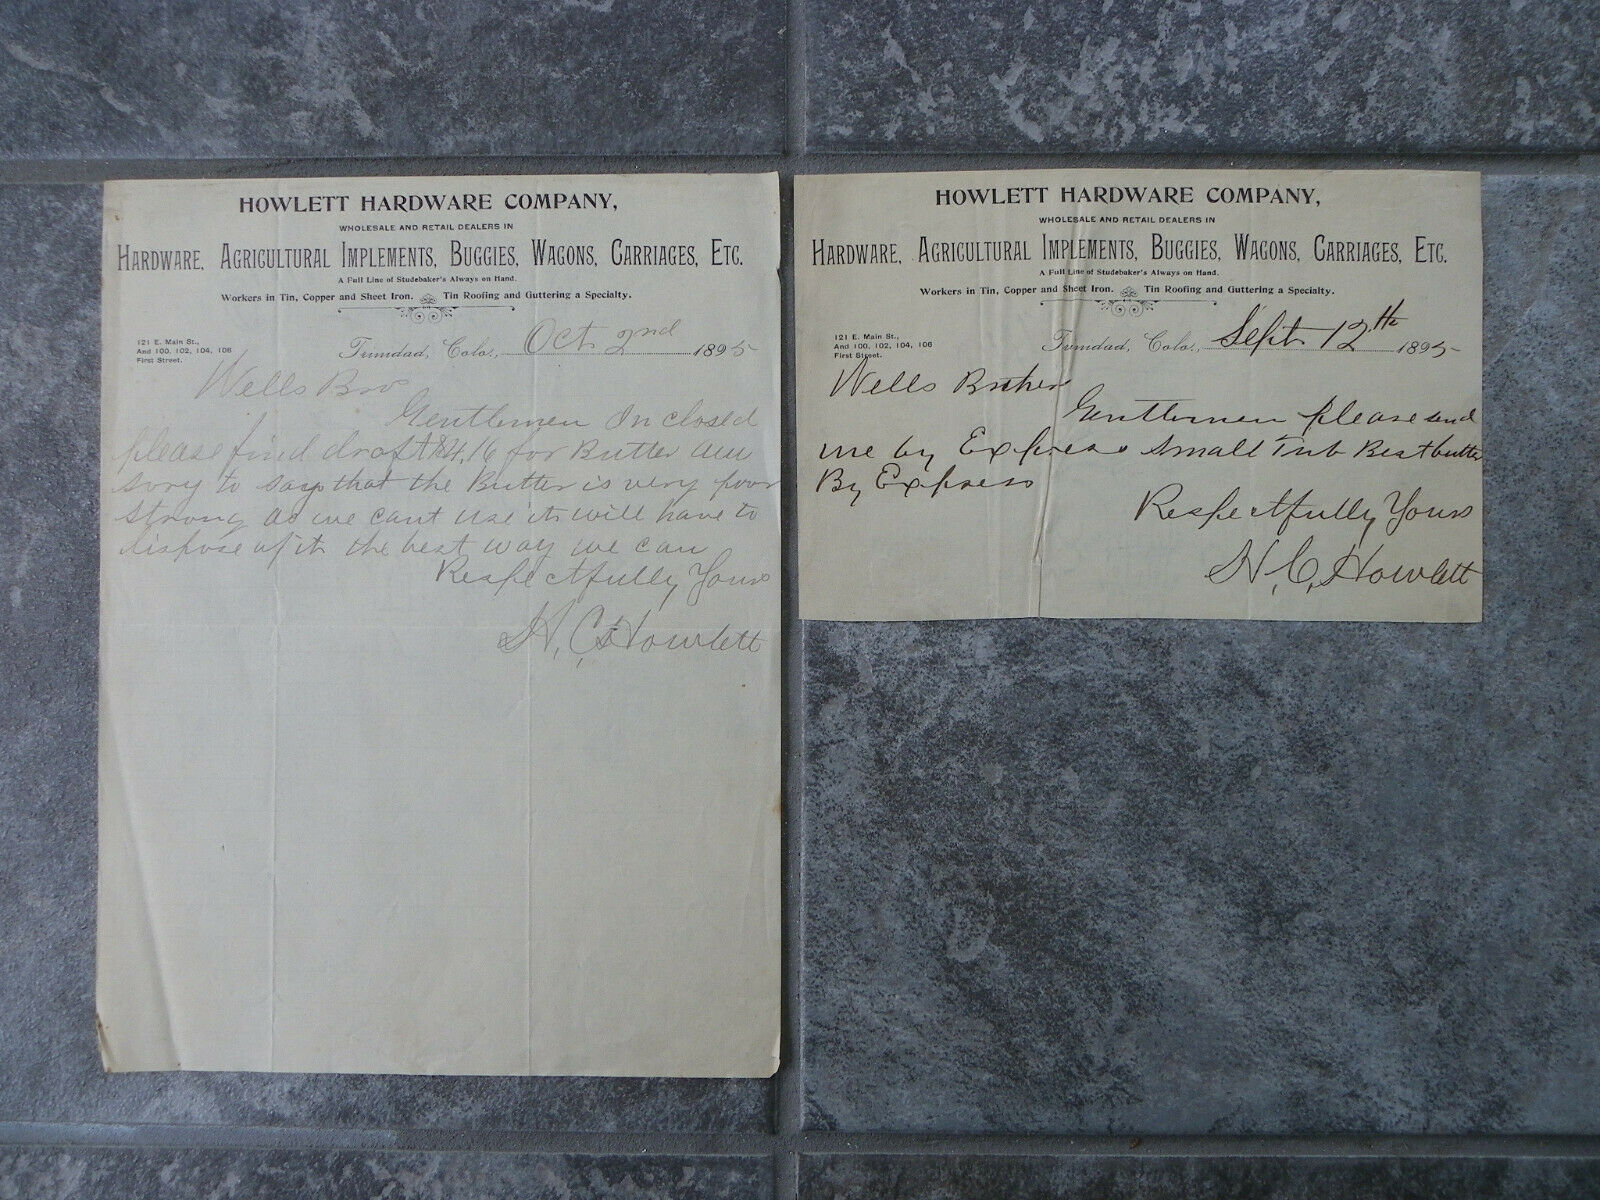 HOWLETT HARDWARE COMPANY,
WHOLESALE AND RETAIL DEALERS IN
HARDWARE, AGRICULTURAL IMPLEMENTS, BUGGIES, WAGONS, CARRIAGES, ETC.
A Full Line of Studebaker's Always on Hand.
Workers in Tin, Copper and Sheet Iron. Tin Roofing and Guttering a Specialty.
121 E. Main St.,
And 100, 102, 104, 106
First Street.
Trinidad, Colo., Oct 2nd 1895
Wells Bro
Gentlemen Inclosed
please find draft $4.16 for Butter am
sory to say that the Butter is very poor
strong as we cant use it will have to
dispose of it the best way we can
Respectfully Yours
H. C. Howlett
HOWLETT HARDWARE COMPANY,
WHOLESALE AND RETAIL DEALERS IN
HARDWARE, AGRICULTURAL IMPLEMENTS, BUGGIES, WAGONS, CARRIAGES, ETC.
A Full Line of Studebaker's Always on Hand.
Workers in Tin, Copper and Sheet Iron. Tin Roofing and Guttering a Specialty.
121 E. Main St.,
And 100, 102, 104, 106
First Street.
Trinidad, Colo., Sept 12th 1895
Wells Brother
Gentlemen please send
me by Express Small Tub Best butter
By Express
Respectfully Yours
H. C. Howlett